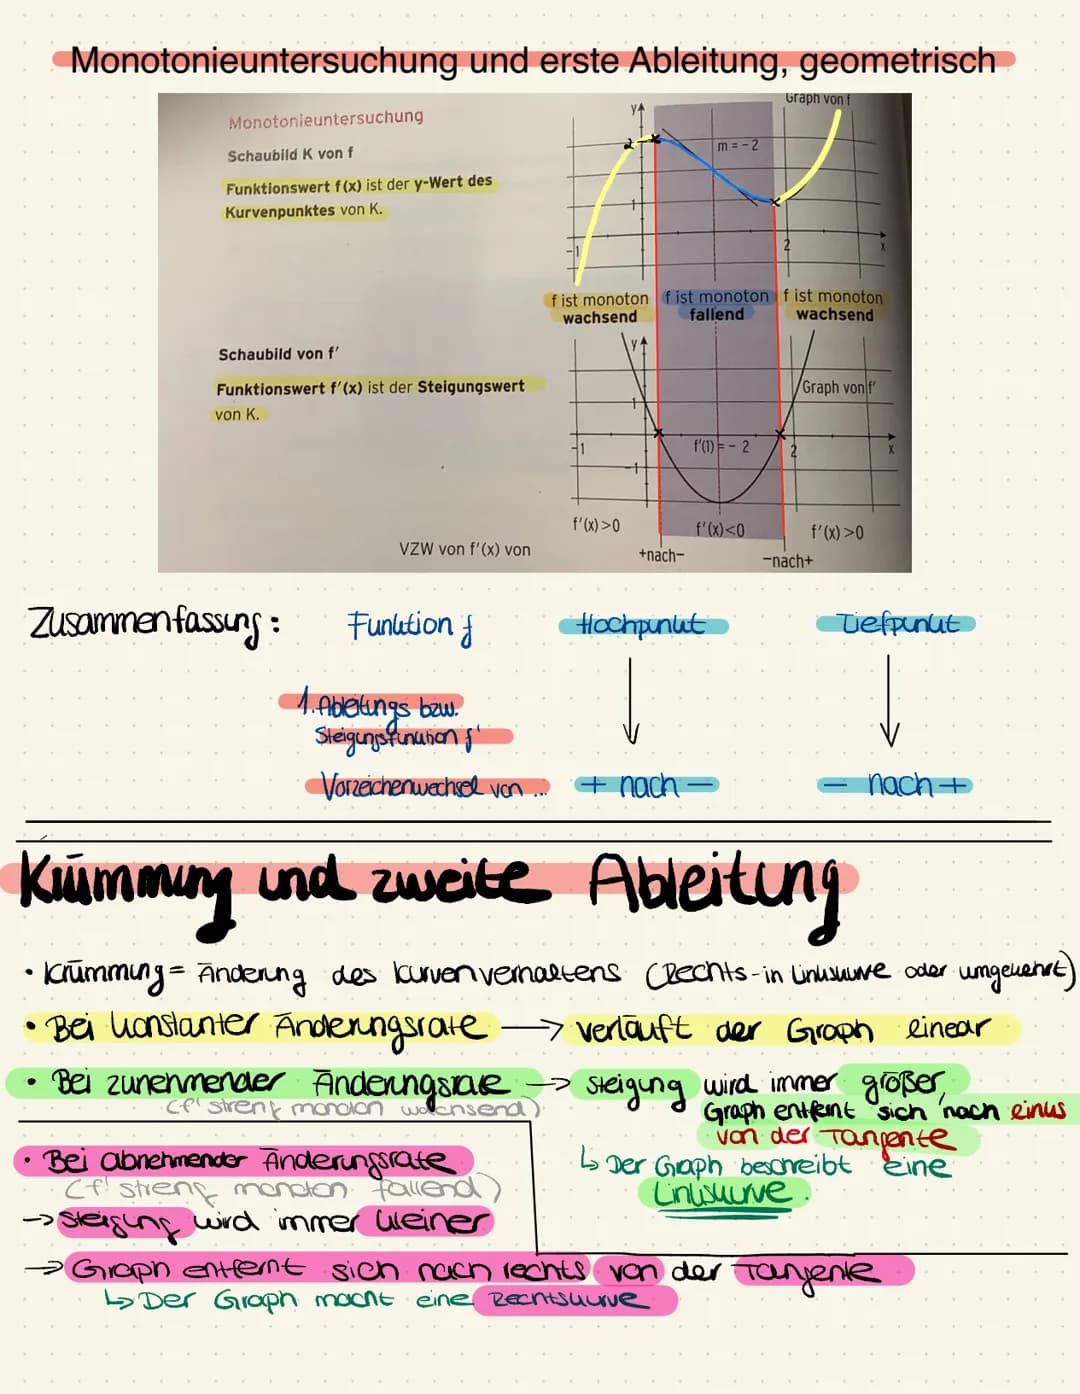 Monotonieuntersuchung und erste Ableitung, geometrisch
Monotonieuntersuchung
Schaubild K von f
Funktionswert f(x) ist der y-Wert des
Kurvenpunktes von K.
y
Graph von f
m = - 2
2
1
-1
2
x
f ist monoton
wachsend
f ist monoton
fallend
f ist monoton
wachsend
Schaubild von f'
Funktionswert f'(x) ist der Steigungswert
von K.
y
Graph von f'
1
-1
f'(1) = - 2
2
x
-1
f'(x) >0
f'(x) <0
f'(x) >0
VZW von f'(x) von
+nach-
-nach+
Zusammenfassung:
Funktion f
Hochpunkt
Tiefpunkt
1. Ableitungs bzw.
Steigungsfunktion f'
Vorzeichenwechsel von ...
+ nach -
- nach +
Krümmung und zweite Ableitung
• Krümmung = Änderung des Kurvenverhaltens (Rechts- in Linkskurve oder umgekehrt)
• Bei konstanter Änderungsrate → verläuft der Graph linear
• Bei zunehmender Änderungsrate → Steigung wird immer größer,
(f' streng monoton wachsend)
Graph entfernt sich nach links
von der Tangente
↳ Der Graph beschreibt eine
Linkskurve.
• Bei abnehmender Änderungsrate
(f' streng monoton fallend)
→ Steigung wird immer kleiner
→ Graph entfernt sich nach rechts von der Tangente
↳ Der Graph macht eine Rechtskurve